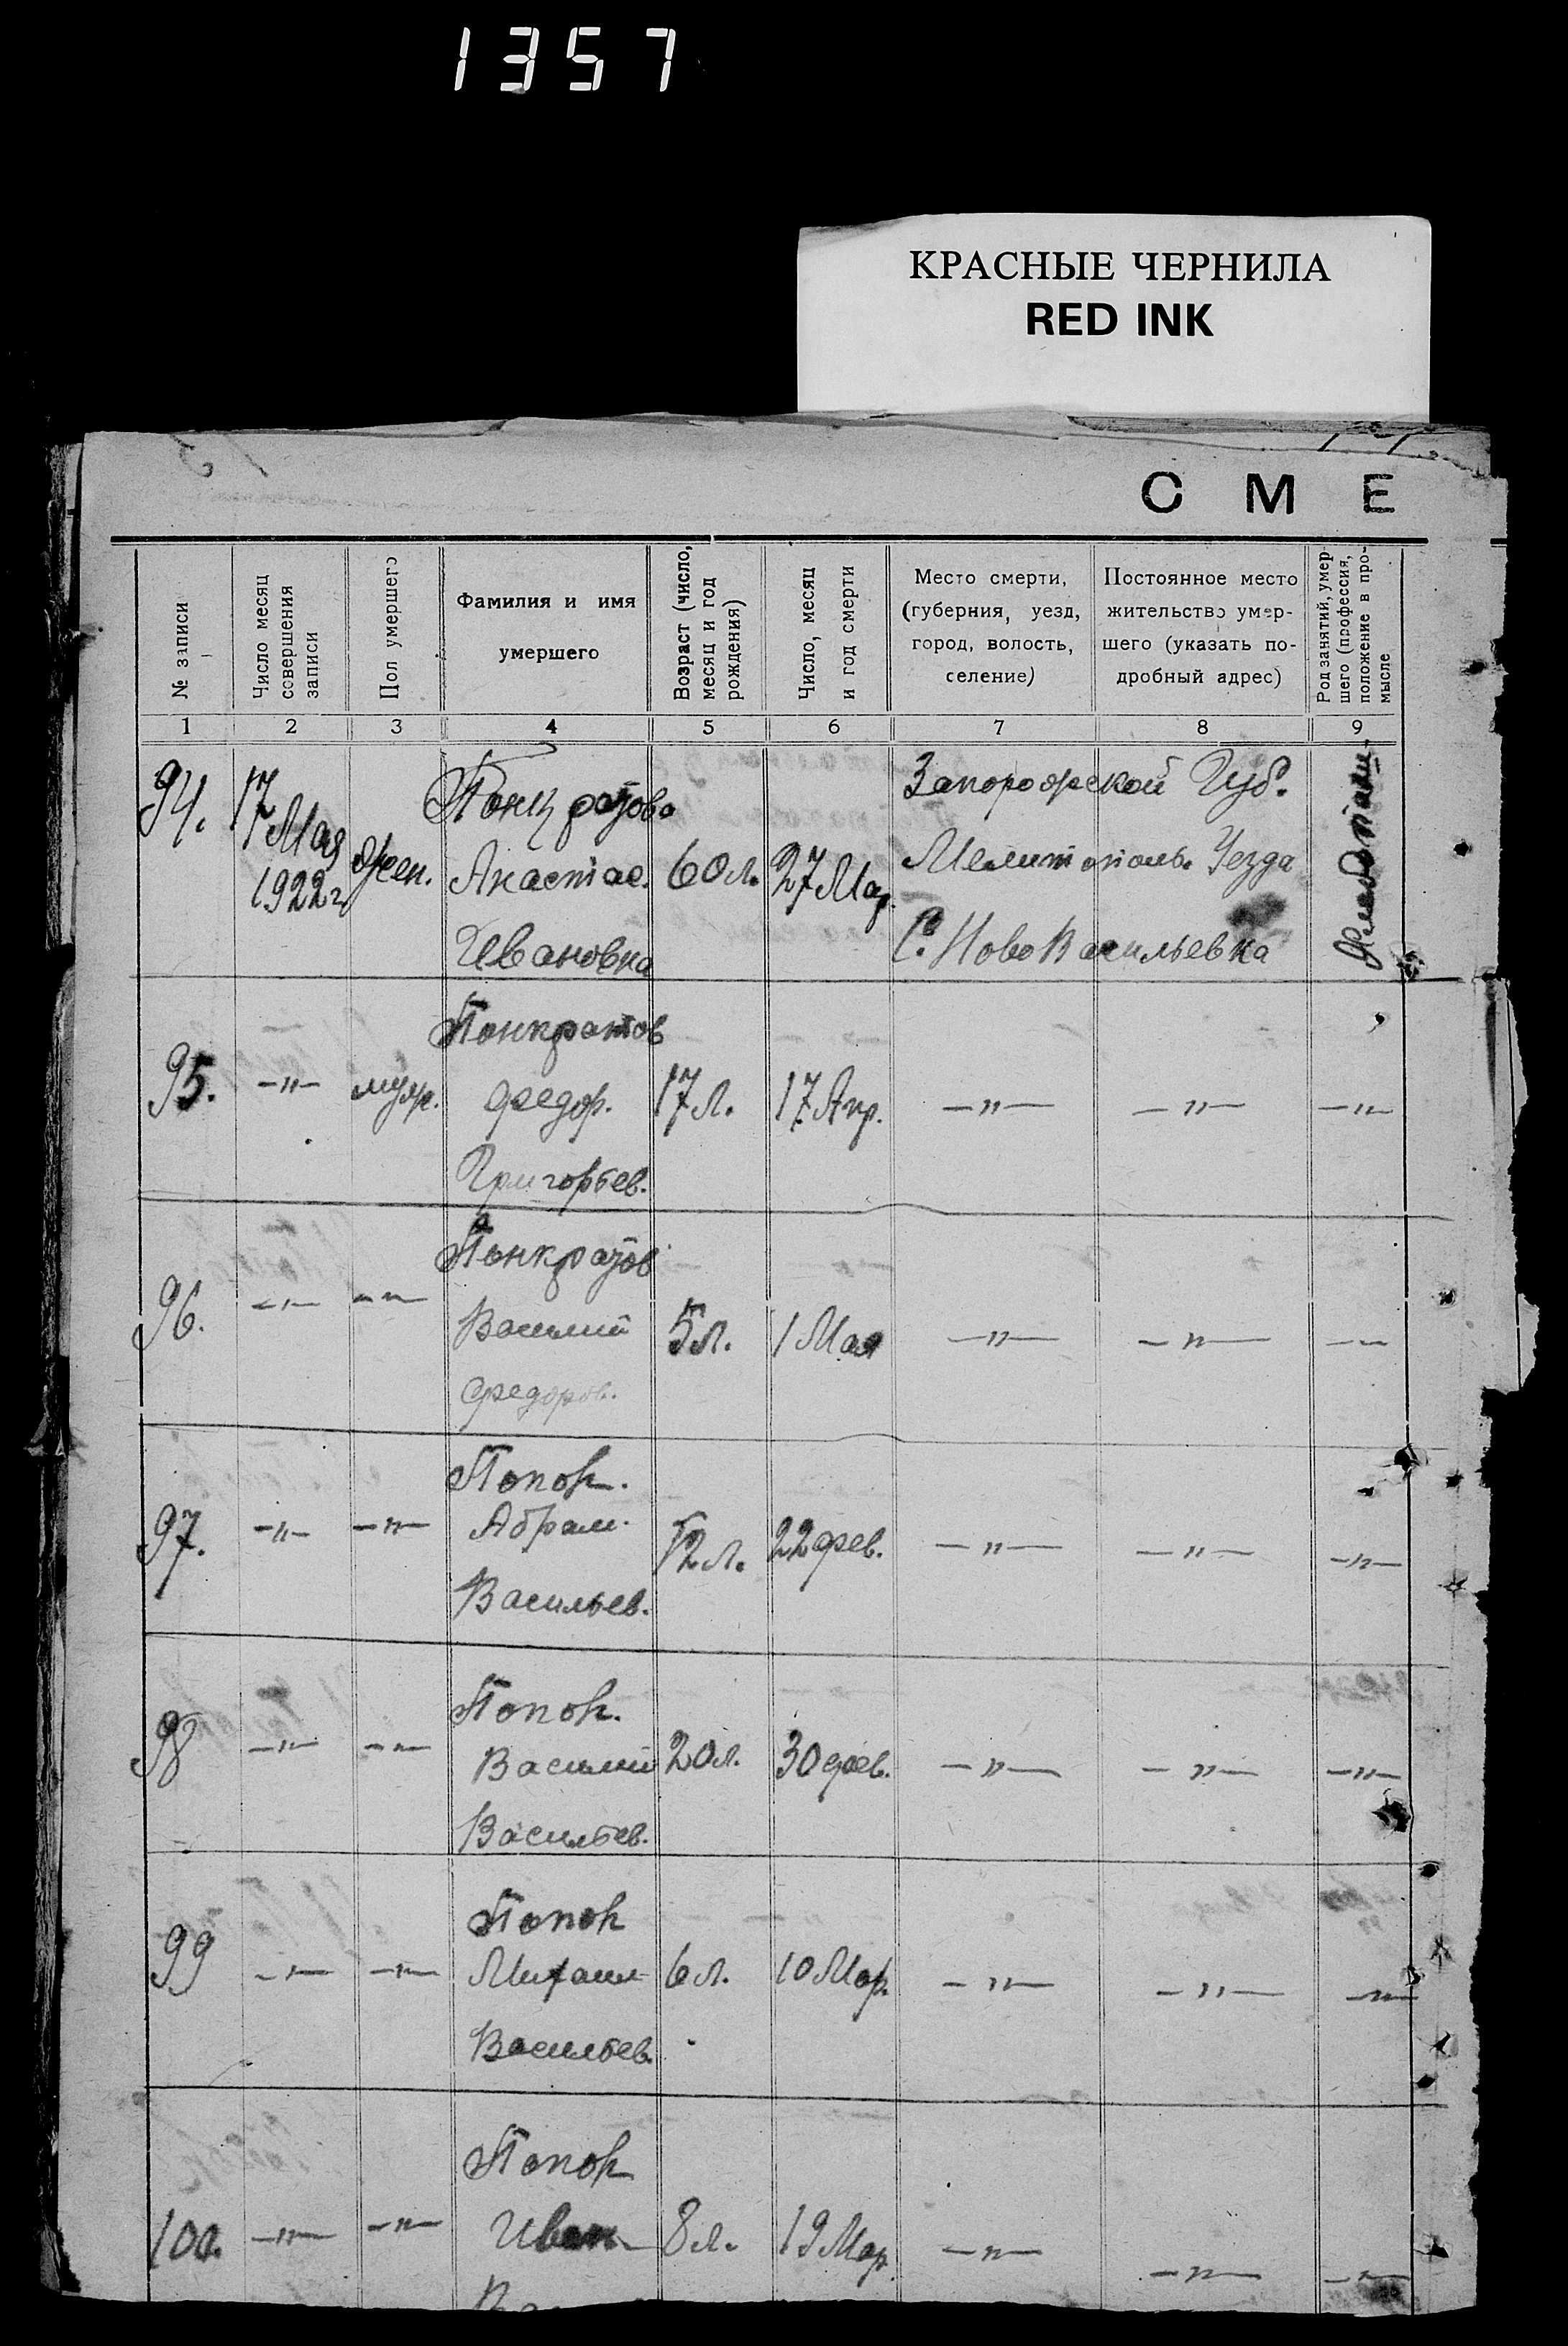 1357
КРАСНЫЕ ЧЕРНИЛА
RED INK
С М Е
№ записи
Число месяц
совершения
записи
Пол умершего
Фамилия и имя
умершего
Возраст (число,
месяц и год
рождения)
Число, месяц
и год смерти
Место смерти,
(губерния, уезд,
город, волость,
селение)
Постоянное место
жительство умер-
шего (указать по-
дробный адрес)
Род занятий, умер-
шего (профессия,
положение в про-
мысле
1 2 3 4 5 6 7 8 9
94.
17
Мая
1922 г.
жен.
Панкратова
Анастас.
Ивановна
60 л.
27 Мар.
Запорожской Губ.
Мелитополь. Уезда
С. Ново Васильевка
95. –"– муж.
Понкратов
Федор.
Григорьев.
17 л. 17 Апр. –"– –"– –"–
96. –"– –"–
Понкратов
Василий
Федоров.
5 л. 1 Мая –"– –"– –"–
97. –"– –"–
Попок.
Абрам.
Васильев.
12 л. 22 фев. –"– –"– –"–
98 –"– –"–
Попок.
Василий
Васильев.
20 л. 30 фев. –"– –"– –"–
99 –"– –"–
Попок
Михаил
Васильев.
6 л. 10 Мар. –"– –"– –"–
100. –"– –"–
Попок
Иван
8 л. 19 Мар. –"– –"– –"–